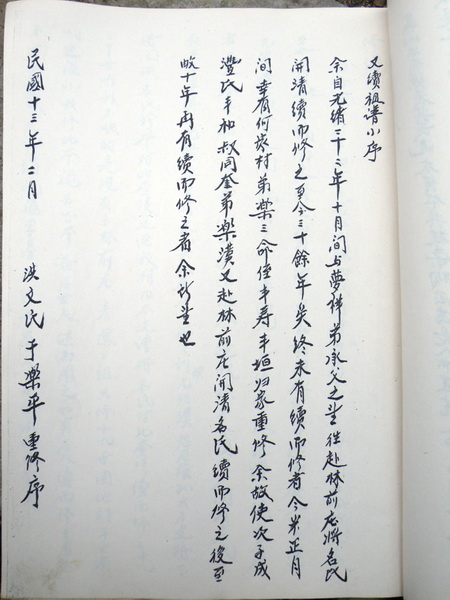 又續祖譜小序
余自光緒三十二年十月間与夢祥弟承父之望往赴林前庄将名氏
開清續而修之至今三十餘年矣終未有續而修者今米正月
间幸有何家村弟樂三命侄丰寿丰垣归家重修余故使次子成
豐氏丰和叔同奎弟樂漢又赴林前庄開清名氏續而修之後至
十年再有續而修之者余所望也
民國十三年二月 洪文氏于樂平重修序